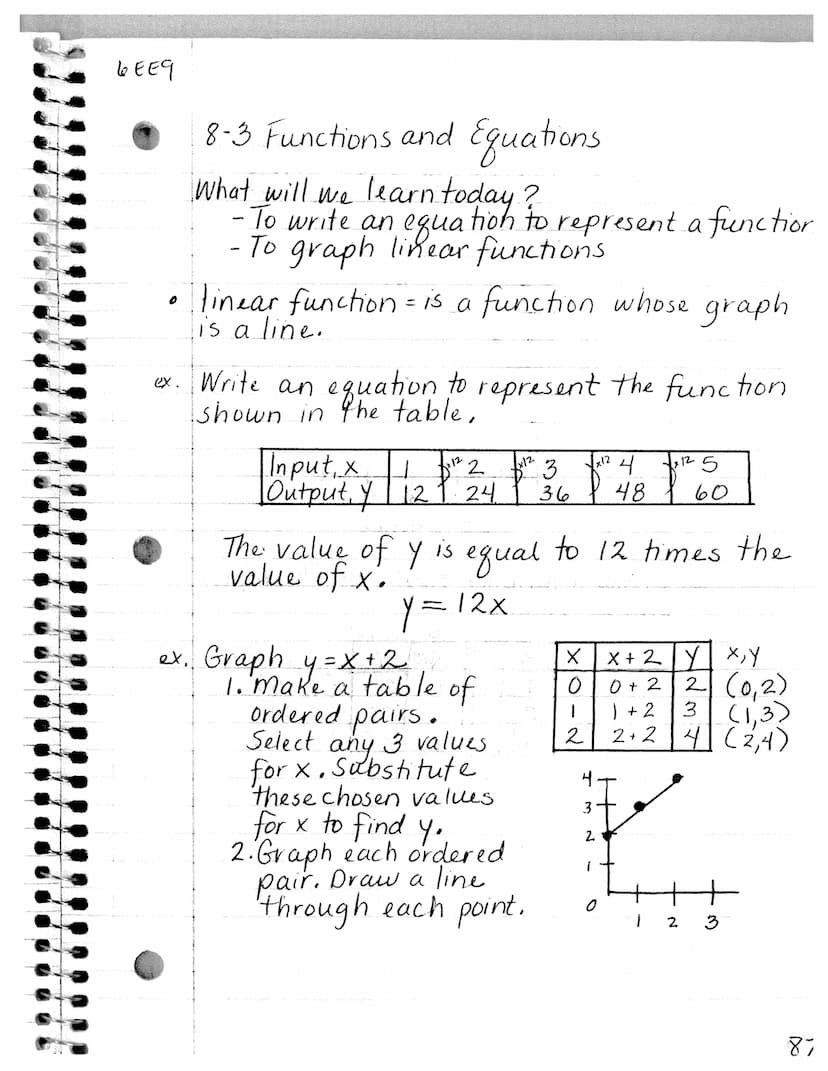 6EE9
8-3 Functions and Equations
What will we learn today?
- To write an equation to represent a function
- To graph linear functions
• linear function = is a function whose graph
is a line.
ex. Write an equation to represent the function
shown in the table.
Input, x 1 x12 2 x12 3 x12 4 x12 5
Output, y 12 24 36 48 60
The value of y is equal to 12 times the
value of x.
y = 12x
ex. Graph y = x + 2
1. Make a table of
ordered pairs.
Select any 3 values
for x. Substitute
these chosen values
for x to find y.
2. Graph each ordered
pair. Draw a line
through each point.
x x + 2 y x,y
0 0 + 2 2 (0,2)
1 1 + 2 3 (1,3)
2 2 + 2 4 (2,4)
4
3
2
1
0
1 2 3
87